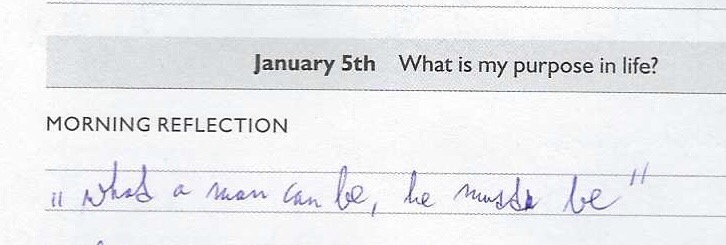 January 5th What is my purpose in life?
MORNING REFLECTION
„ what a man can be, he must be "